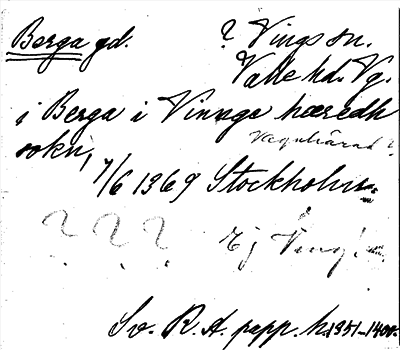 Berga gd. ? Vings sn.
Valle hd. Vg.
i Berga i Vinnge hæredh
sokn,
7/6 1369 Stockholm
? ? ? Ej Ving
Sv. R. A. papp. h. 1351-1400.